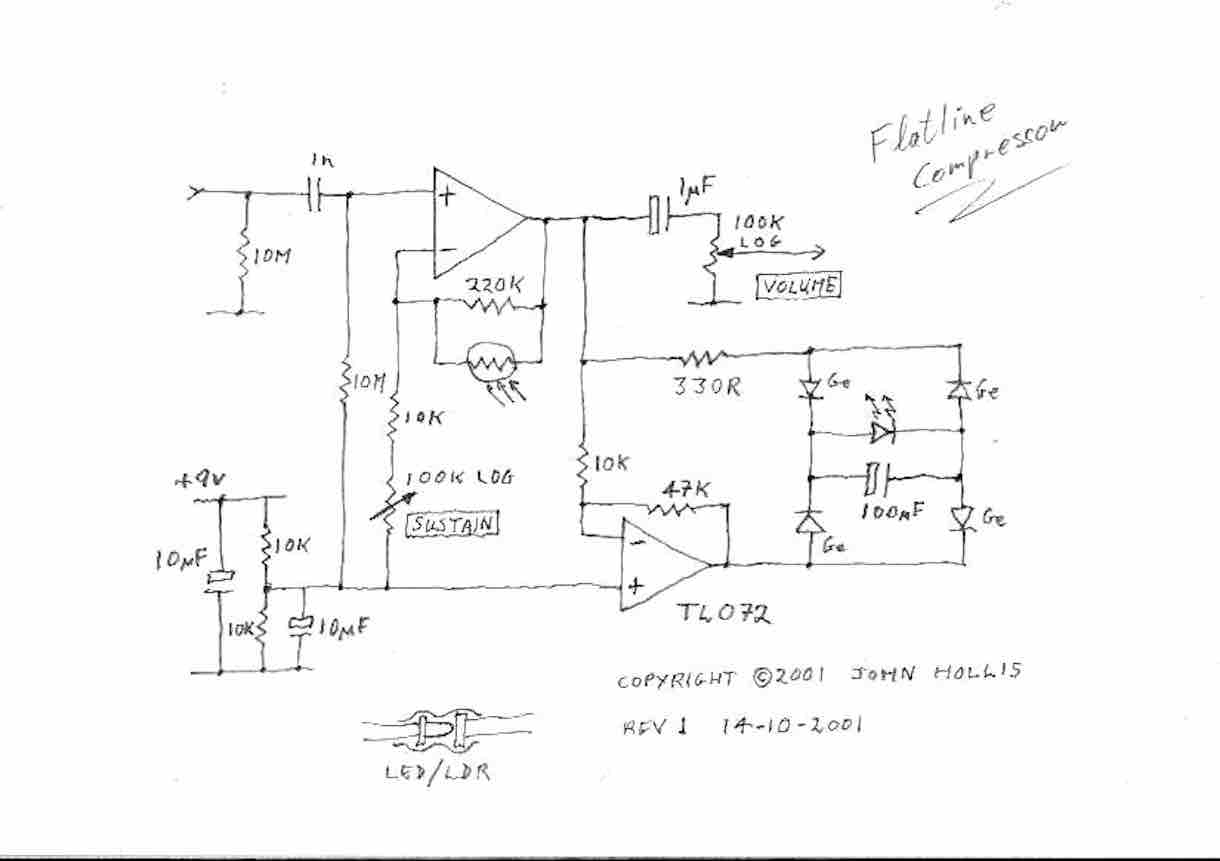 Flatline
Compressor
1n
+
-
10M
220K
1µF
100K
LOG
VOLUME
10M
10K
330R
Ge
Ge
100K LOG
SUSTAIN
10K
47K
100µF
Ge
Ge
+9V
10µF
10K
10K
10µF
-
+
TL072
COPYRIGHT ©2001 JOHN HOLLIS
REV 1 14-10-2001
LED/LDR